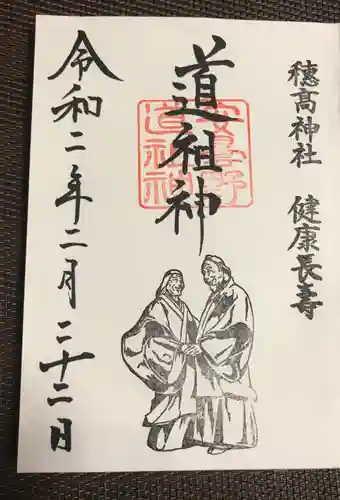 穂高神社　健康長寿
道祖神
安曇野
道祖神
令和二年二月二十二日